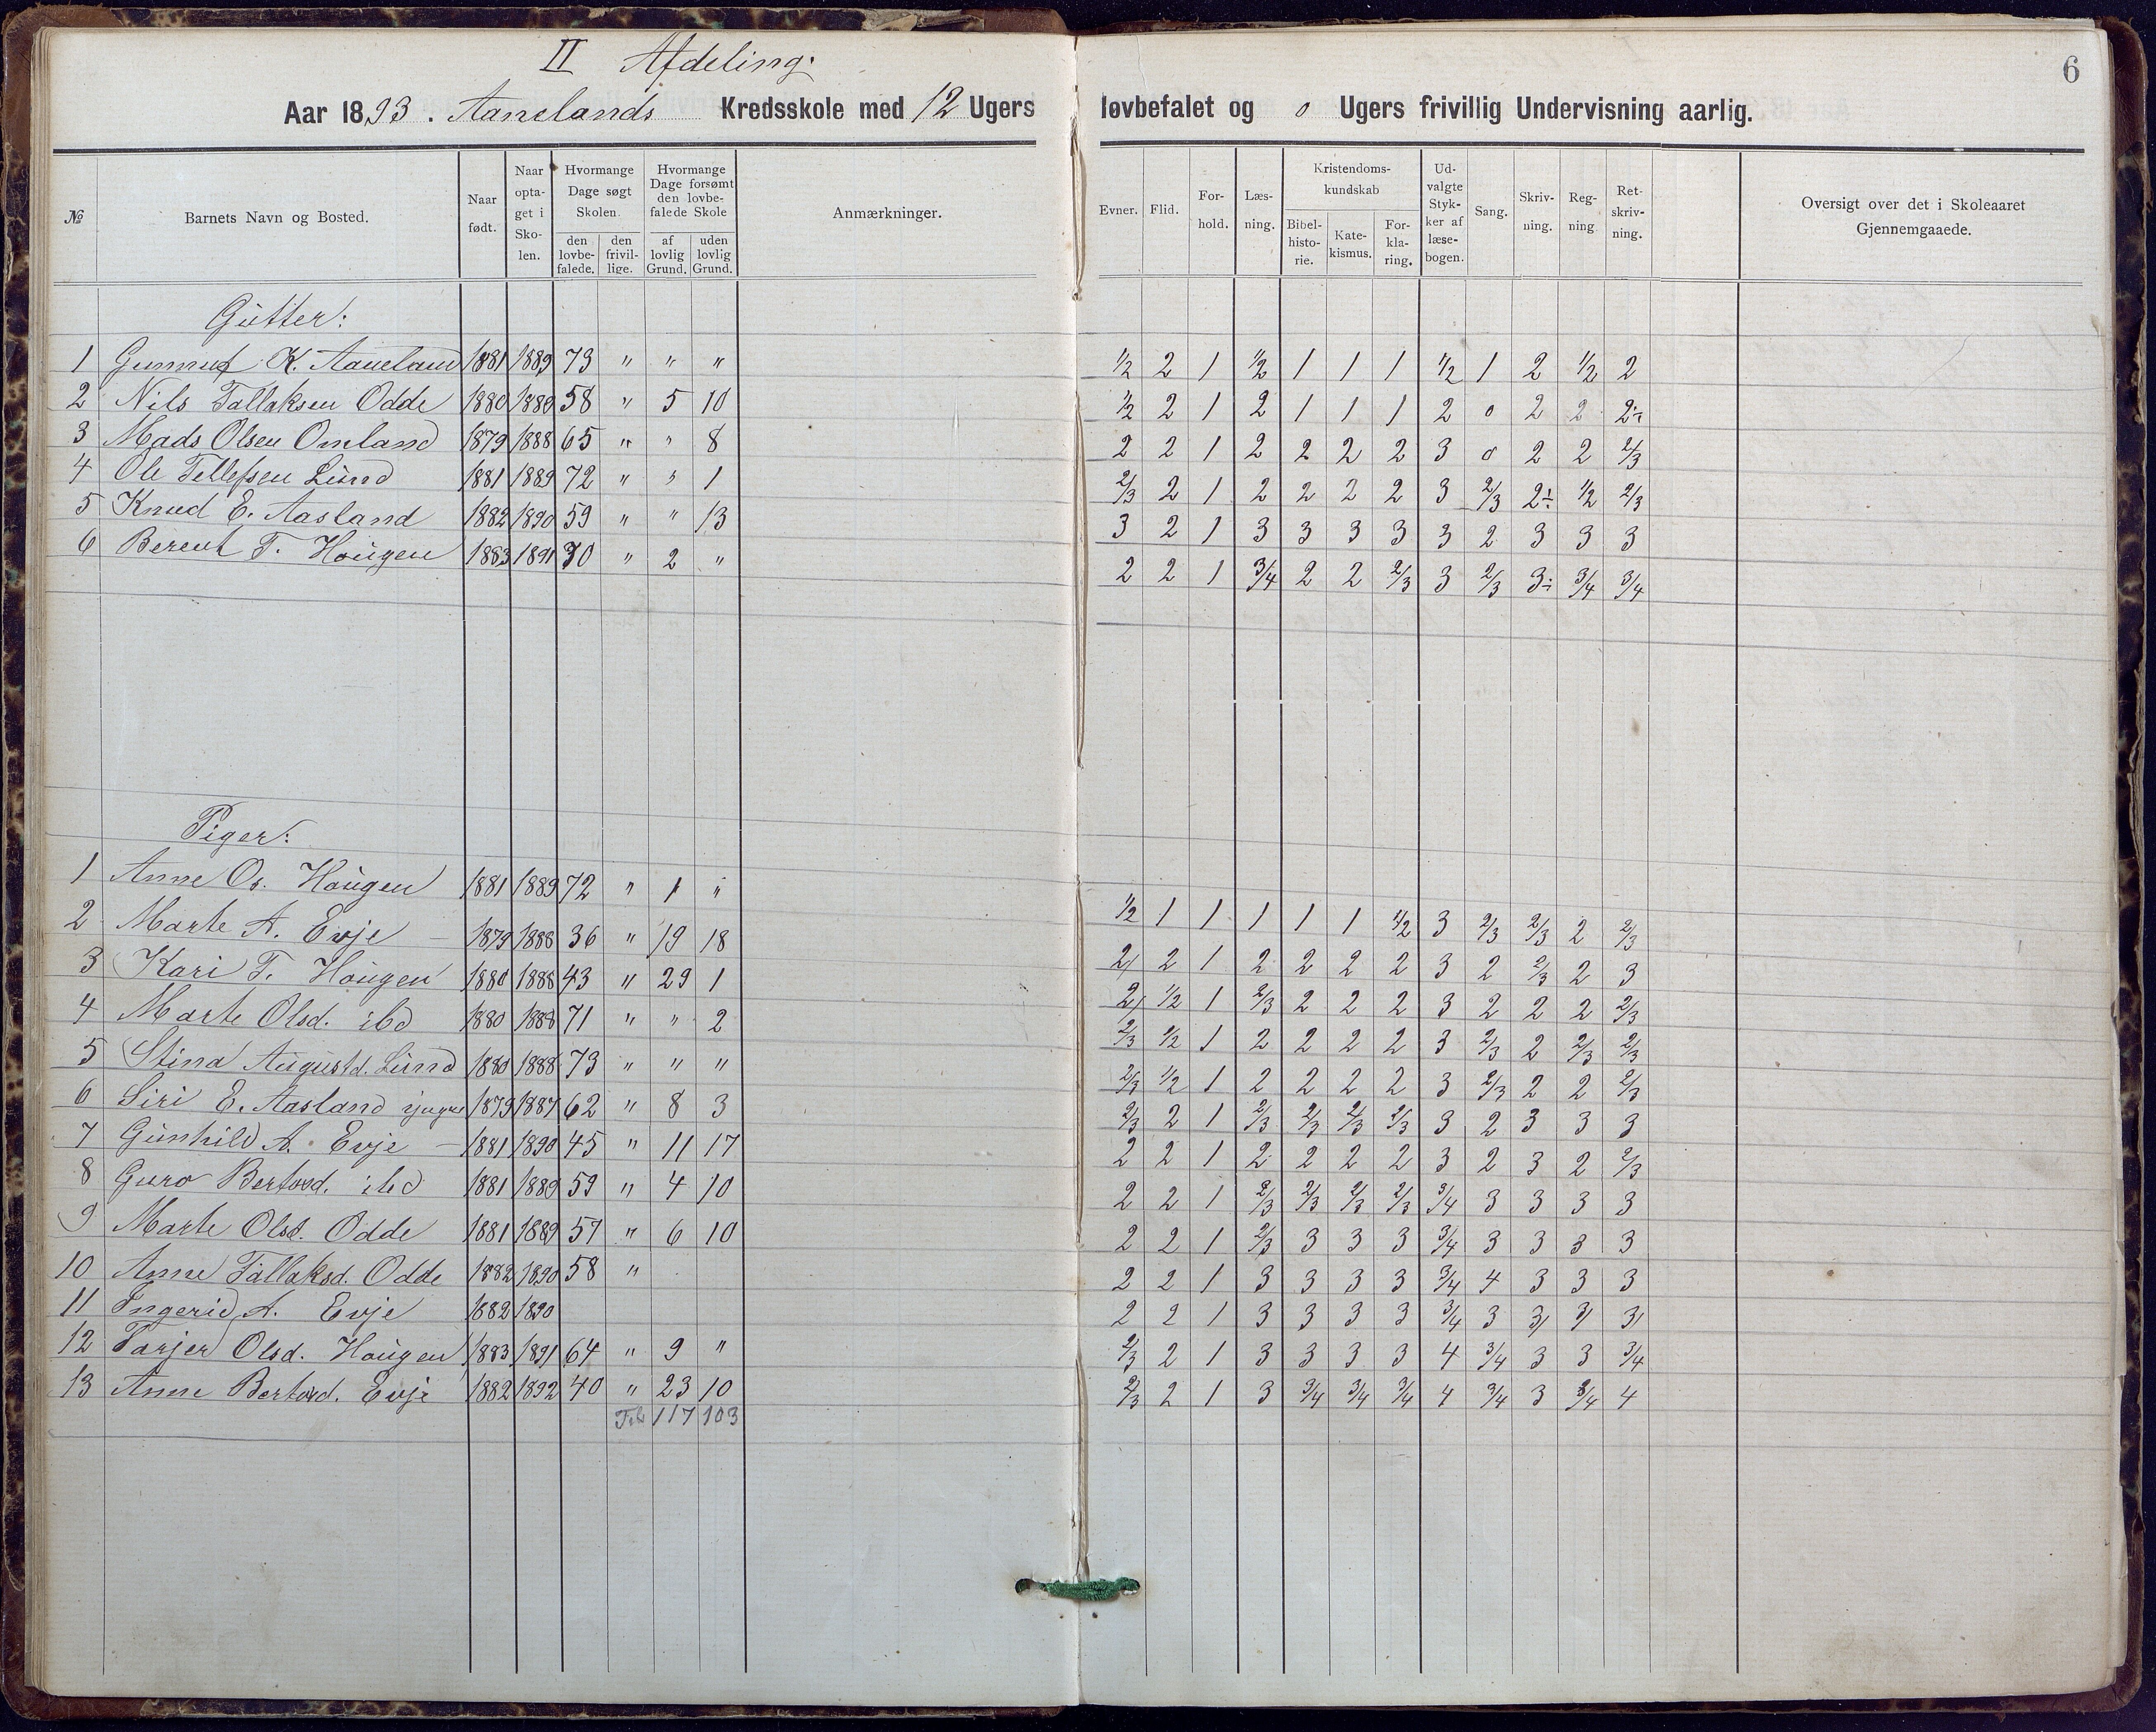 II Afdeling.
6
Aar 1893. Aanelands Kredsskole med 12 Ugers løvbefalet og 0 Ugers frivillig Undervisning aarlig.
№ | Barnets Navn og Bosted. | Naar født. | Naar optaget i Skolen. | Hvormange Dage søgt Skolen. den lovbefalede. | den frivillige. | Hvormange Dage forsømt den lovbefalede Skole af lovlig Grund. | uden lovlig Grund. | Anmærkninger. | Evner. | Flid. | Forhold. | Læsning. | Kristendomskundskab Bibelhistorie. | Katekismus. | Forklaring. | Udvalgte Stykker af læsebogen. | Sang. | Skrivning. | Regning | Retskrivning. | Oversigt over det i Skoleaaret Gjennemgaaede.
Gutter:
1 Gunnuf K. Aaneland 1881 1889 73 " " " 1/2 2 1 1/2 1 1 1 1/2 1 2 1/2 2
2 Nils Tallaksen Odde 1880 1889 58 " 5 10 1/2 2 1 2 1 1 1 2 0 2 2 2÷
3 Mads Olsen Omland 1879 1888 65 " " 8 2 2 1 2 2 2 2 3 0 2 2 2/3
4 Ole Tellefsen Lund 1881 1889 72 " " 1 2/3 2 1 2 2 2 2 3 2/3 2÷ 1/2 2/3
5 Knud E. Aasland 1882 1890 59 " " 13 3 2 1 3 3 3 3 3 2 3 3 3
6 Berent T. Hougen 1883 1891 70 " 2 " 2 2 1 3/4 2 2 2/3 3 2/3 3÷ 3/4 3/4
Piger:
1 Anne Os. Hougen 1881 1889 72 " 1 " 1/2 1 1 1 1 1 1/2 3 2/3 2/3 2 2/3
2 Marte A. Evje – 1879 1888 36 " 19 18 2/ 2 1 2 2 2 2 3 2 2/3 2 3
3 Kari T. Hougen 1880 1888 43 " 29 1 2/ 1/2 1 2/3 2 2 2 3 2 2 2 2/3
4 Marte Olsd. ibd 1880 1888 71 " " 2 2/3 1/2 1 2 2 2 2 3 2/3 2 2/3 2/3
5 Stina Augustd. Lund 1880 1888 73 " " " 2/3 1/2 1 2 2 2 2 3 2/3 2 2 2/3
6 Siri E. Aasland yngre 1879 1887 62 " 8 3 2/3 2 1 2/3 2/3 2/3 2/3 3 2 3 3 3
7 Gunhild A. Evje – 1881 1890 45 " 11 17 2 2 1 2 2 2 2 3 2 3 2 2/3
8 Guro Bertovd. ibd 1881 1889 59 " 4 10 2 2 1 2/3 2/3 2/3 2/3 3/4 3 3 3 3
9 Marte Olsd. Odde 1881 1889 57 " 6 10 2 2 1 2/3 3 3 3 3/4 3 3 3 3
10 Anne Tallaksd. Odde 1882 1890 58 " 2 2 1 3 3 3 3 3/4 4 3 3 3
11 Ingerid A. Evje 1882 1890 2 2 1 3 3 3 3 3/4 3 3/ 3/ 3/
12 Tarjer Olsd. Hougen 1883 1891 64 " 9 " 2/3 2 1 3 3 3 3 4 3/4 3 3 3/4
13 Anne Bertovd. Evje 1882 1892 40 " 23 10 2/3 2 1 3 3/4 3/4 3/4 4 3/4 3 3/4 4
117 103